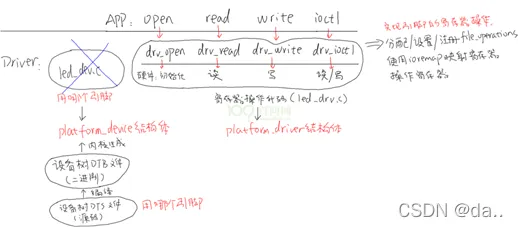 APP: open read write ioctl
实现引脚的寄存器操作
Driver: drv_open drv_read drv_write drv_ioctl
分配/设置/注册file_operations
led_dev.c
硬件初始化 读 写 读/写
使用ioremap映射寄存器
操作寄存器
用哪个引脚
寄存器操作代码(led_drv.c)
platform_device结构体
platform_driver结构体
内核生成
设备树DTB文件
(二进制)
编译
设备树DTS文件
(源码)
用哪个引脚
CSDN @da..